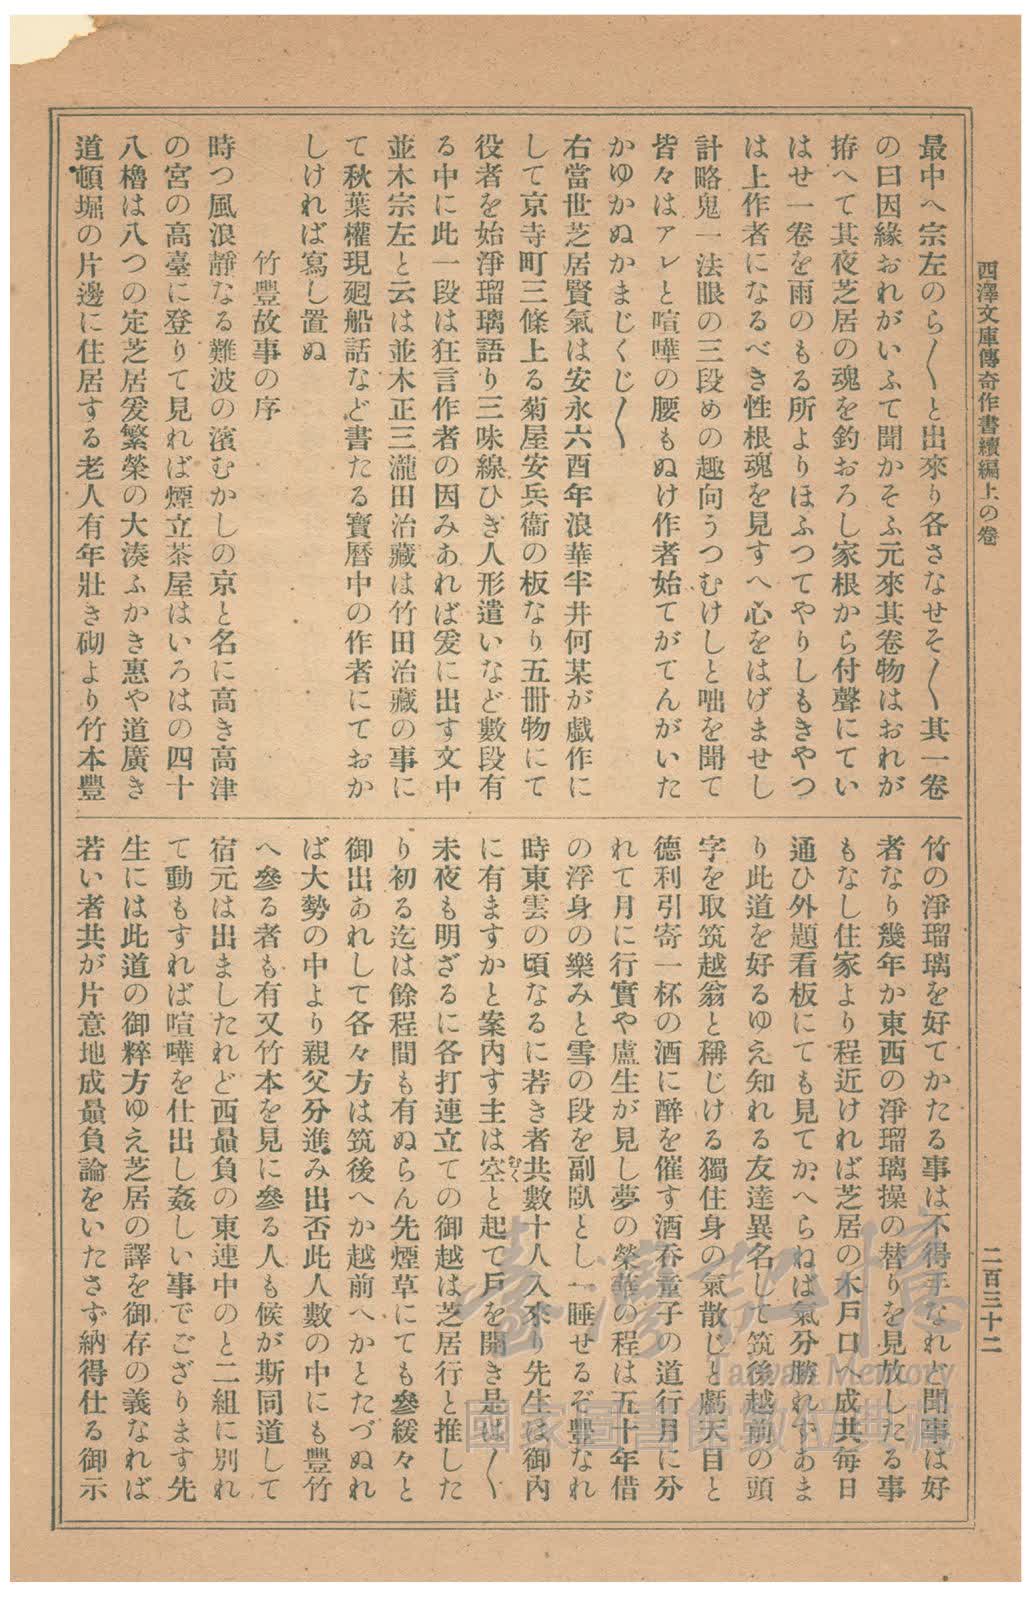 西澤文庫傳奇作書續編上の卷
二百三十二
最中へ宗左のら〱と出來り各さなせそ〱其一卷
の曰因緣おれがいふて聞かそふ元來其卷物はおれが
拵へて其夜芝居の魂を釣おろし家根から付聲にてい
はせ一卷を雨のもる所よりほふつてやりしもきやつ
は上作者になるべき性根魂を見すへ心をはげませし
計略鬼一法眼の三段めの趣向うつむけしと咄を聞て
皆々はアレと喧嘩の腰もぬけ作者始てがてんがいた
かゆかぬかまじくじ〱
右當世芝居賢氣は安永六酉年浪華半井何某が戯作に
して京寺町三條上る菊屋安兵衞の板なり五冊物にて
役者を始淨瑠璃語り三味線ひき人形遣いなど數段有
る中に此一段は狂言作者の因みあれば爰に出す文中
並木宗左と云は並木正三瀧田治藏は竹田治藏の事に
て秋葉權現廻船話など書たる寶曆中の作者にておか
しければ寫し置ぬ
竹豐故事の序
時つ風浪靜なる難波の濱むかしの京と名に高き高津
の宮の高臺に登りて見れば煙立茶屋はいろはの四十
八櫓は八つの定芝居爰繁榮の大湊ふかき惠や道廣き
道頓堀の片邊に住居する老人有年壯き砌より竹本豐
竹の淨瑠璃を好てかたる事は不得手なれど聞事は好
者なり幾年か東西の淨瑠璃操の替りを見放したる事
もなし住家より程近ければ芝居の木戸口へ成共每日
通ひ外題看板にても見てかへらねば氣分勝れずあま
り此道を好るゆえ知れる友達異名して筑後越前の頭
字を取筑越翁と稱じける獨住身の氣散じと虧天目と
德利引寄一杯の酒に醉を催す酒呑童子の道行月に分
れて月に行實や盧生が見し夢の榮華の程は五十年借
の浮身の樂みと雪の段を副臥とし一睡せるぞ豐なれ
時東雲の頃なるに若き者共數十人入來り先生は御內
に有ますかと案内す主は空と起て戸を開き是は〱
未夜も明ざるに各打連立ての御越は芝居行と推した
り初る迄は餘程間も有ぬらん先煙草にても參緩々と
御出あれして各々方は筑後へか越前へかとたづぬれ
ば大勢の中より親父分進み出否此人數の中にも豐竹
へ參る者も有又竹本を見に參る人も候が斯同道して
宿元は出ましたれど西贔負の東連中のと二組に別れ
て動もすれば喧嘩を仕出し姦しい事でござります先
生には此道の御粹方ゆえ芝居の譯を御存の義なれば
若い者共が片意地成贔負論をいたさず納得仕る御示
臺灣記憶
Taiwan Memory
國家圖書館數位典藏